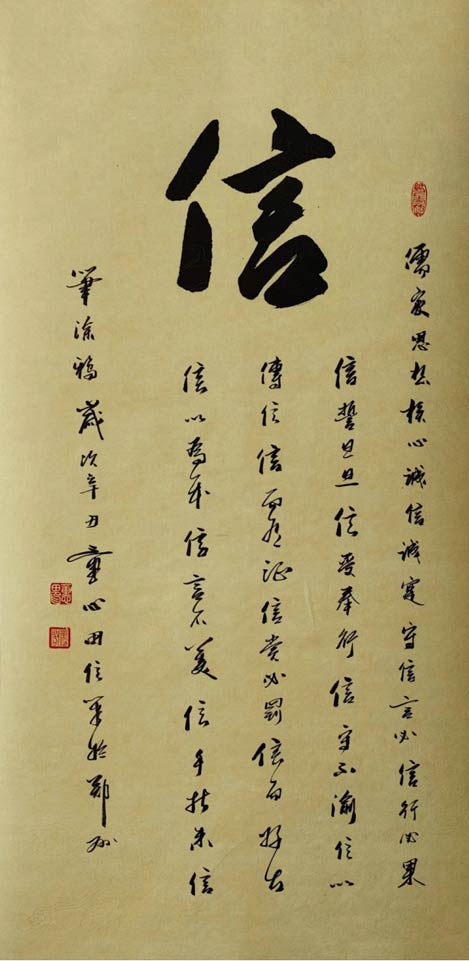 信
儒家思想核心誠信誠實守信言必信行必果
信誓旦旦信受奉行信守不渝信以
傳信信而有证信賞必罰信而好古
信以為信言不美信手拈来信
筆涂鴉歲次辛丑童心田信筆於鄭州